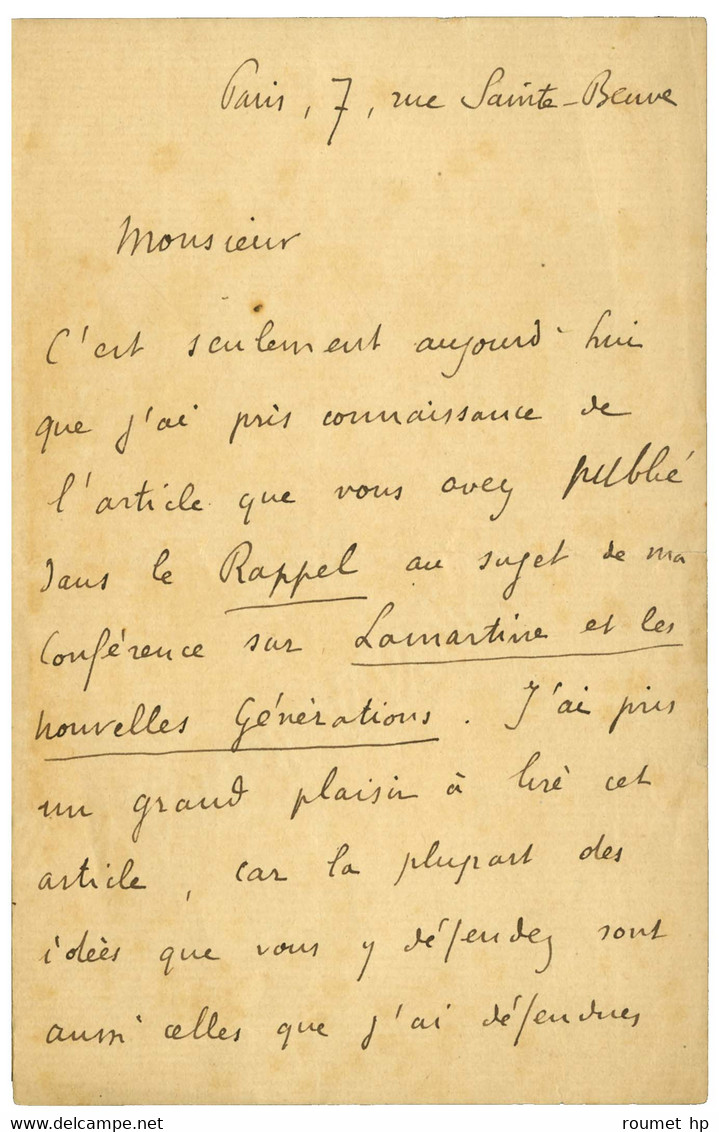 Paris, 7, rue Sainte-Beuve
Monsieur
C'est seulement aujourd'hui
que j'ai pris connaissance de
l'article que vous avez publié
dans le Rappel au sujet de ma
Conférence sur Lamartine et les
nouvelles Générations. J'ai pris
un grand plaisir à lire cet
article, car la plupart des
idées que vous y défendez sont
aussi celles que j'ai défendues
www.delcampe.net
roumet hp